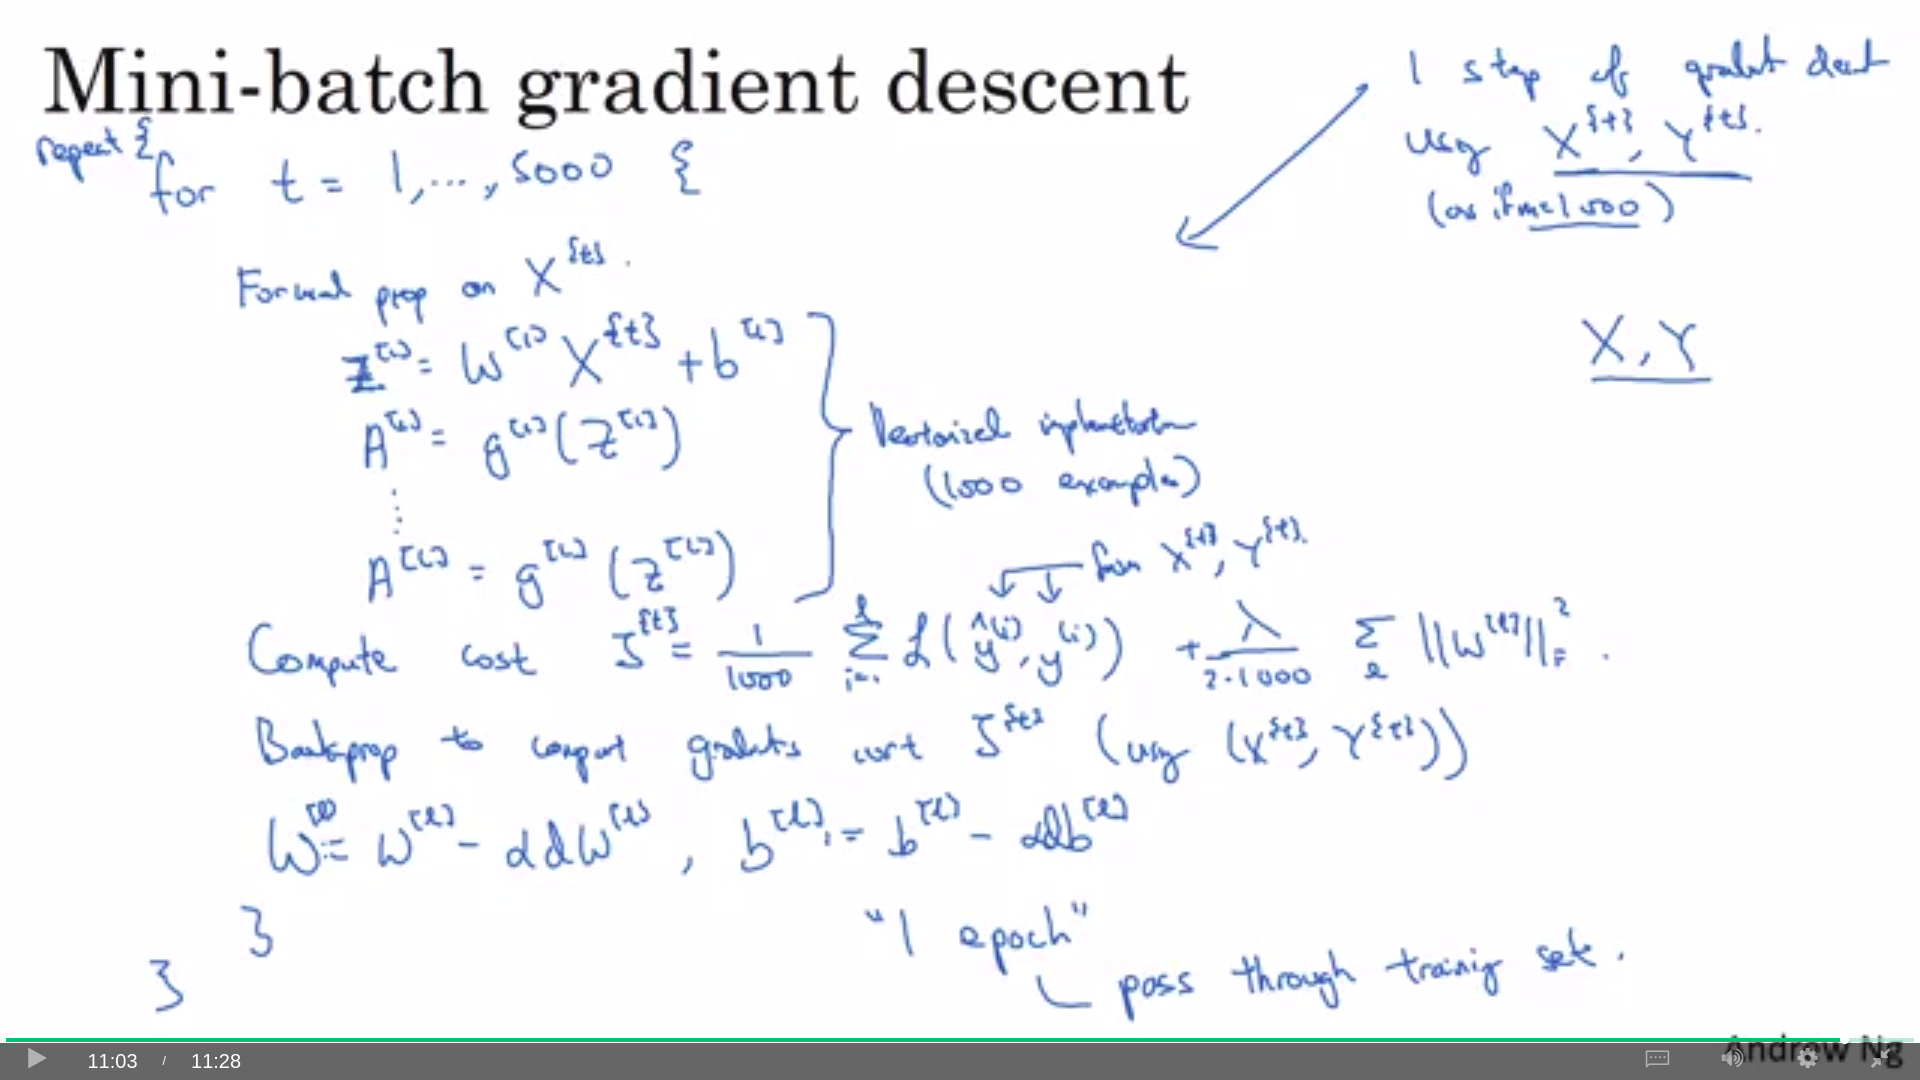 Mini-batch gradient descent
1 step of gradient descent
using X^{t}, Y^{t}.
(as if m=1000)
repeat {
for t = 1,..., 5000 {
Forward prop on X^{t}.
Z^[1] = W^[1] X^{t} + b^[1]
A^[1] = g^[1](Z^[1])
⋮
A^[L] = g^[L](Z^[L])
Vectorized implementation
(1000 examples)
X, Y
from X^{t}, Y^{t}.
Compute cost J^{t} = 1/1000 Σ_{i=1}^{l} L(ŷ^(i), y^(i)) + λ/(2·1000) Σ_l ||W^[l]||_F^2.
Backprop to compute gradients wrt J^{t} (using (X^{t}, Y^{t}))
W^[l] := W^[l] - αdW^[l], b^[l] := b^[l] - αdb^[l]
}
}
"1 epoch"
pass through training set.
Andrew Ng
11:03 / 11:28